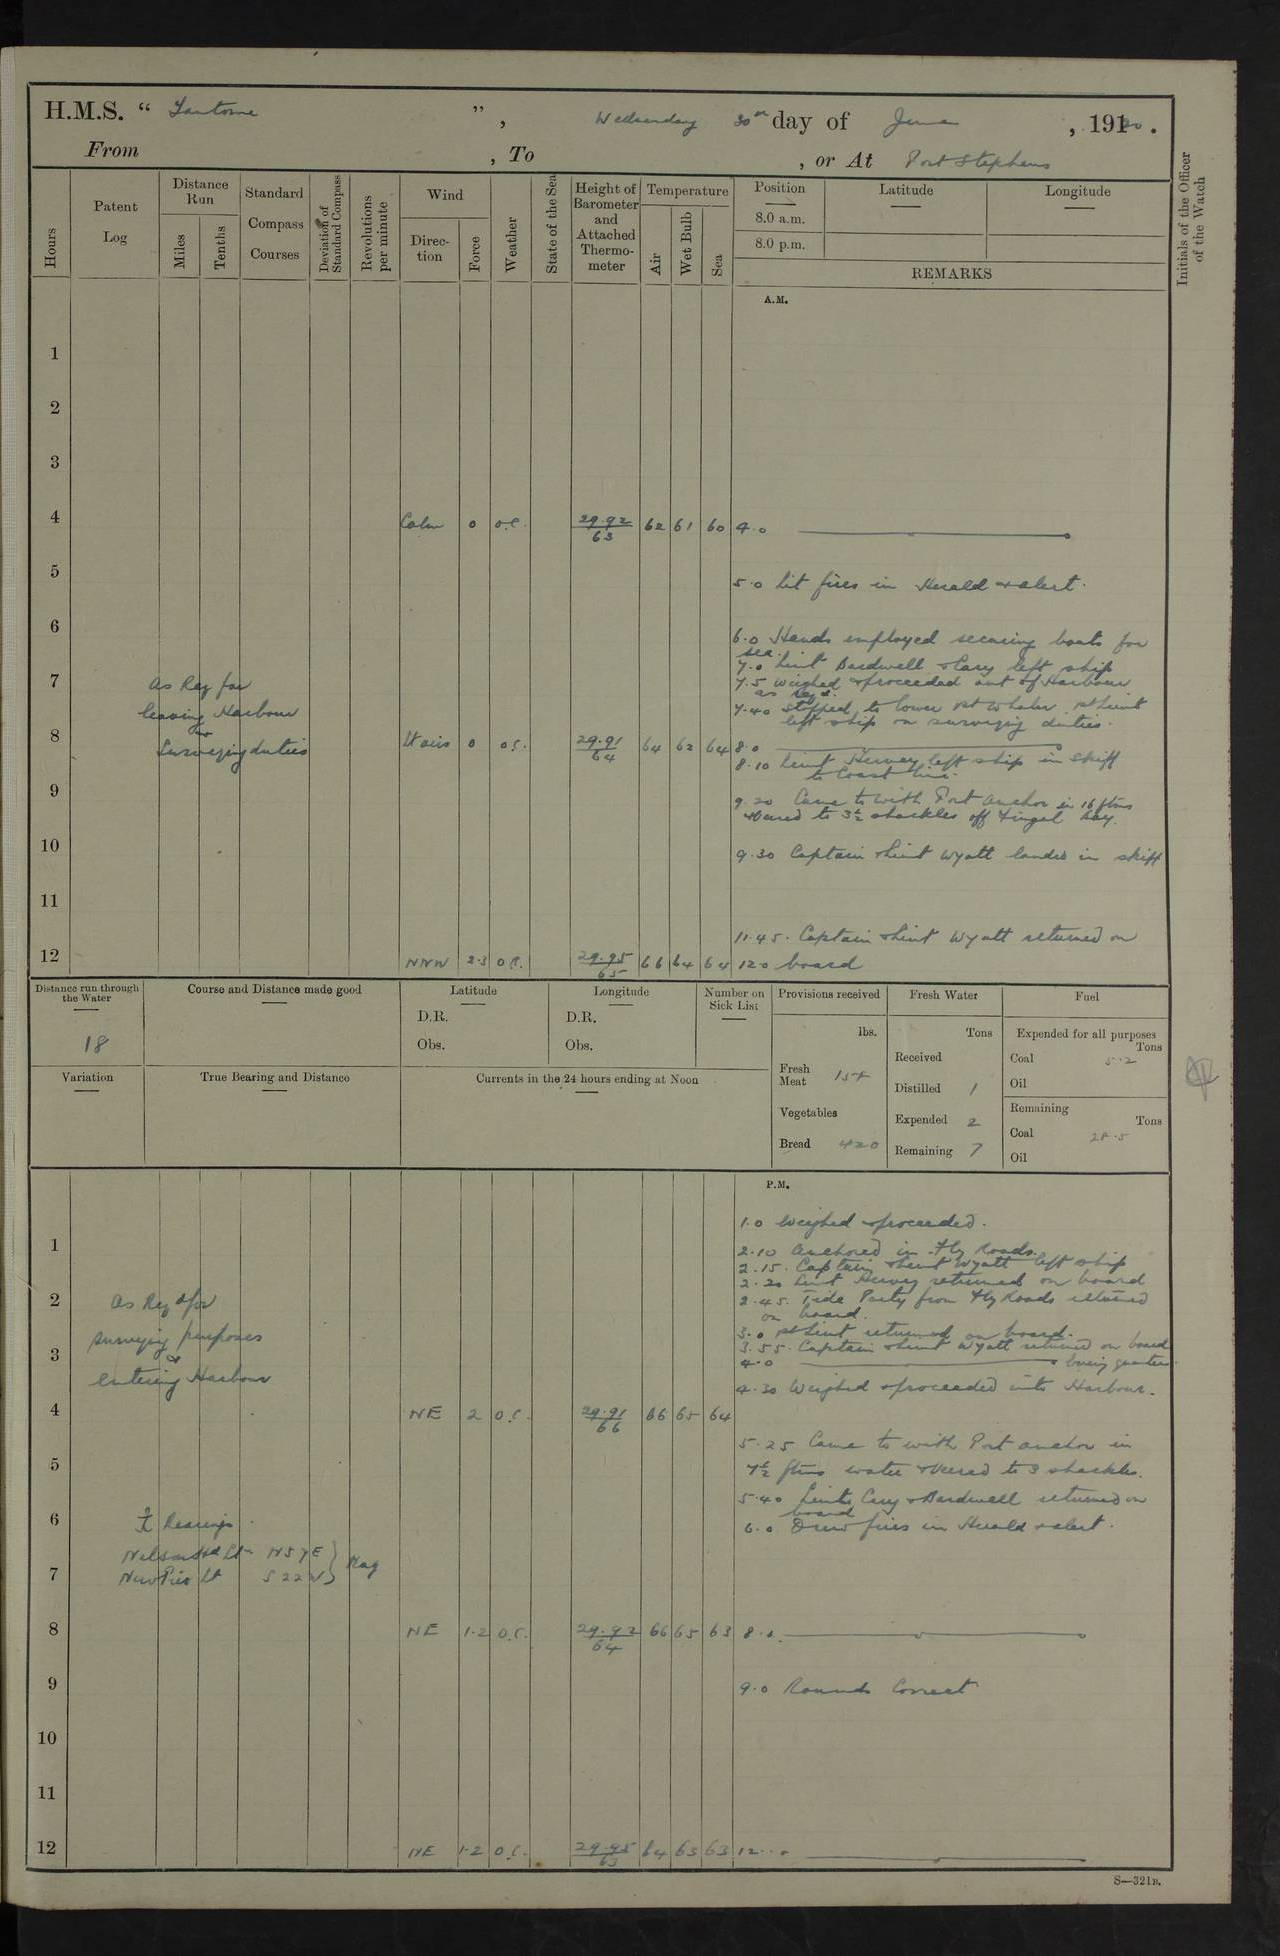 H.M.S. "Fantome", Wednesday 30th day of June, 1920.
From , To , or At Port Stephens
Hours
Patent Log
Distance Run
Miles
Tenths
Standard Compass Courses
Deviation of Standard Compass
Revolutions per minute
Wind
Direction
Force
Weather
State of the Sea
Height of Barometer and Attached Thermometer
Temperature
Air
Wet Bulb
Sea
Position
8.0 a.m.
8.0 p.m.
Latitude
Longitude
REMARKS
Initials of the Officer of the Watch
A.M.
1
2
3
4 Calm 0 o.c. 29.92/63 62 61 60 4.0
5 5.0 Lit fires in Herald & alert.
6 6.0 Hands employed securing boats for
sea.
7.0 Lieut Bardwell & Cary left ship
7 As Req for 7.5 Weighed & proceeded out of Harbour
as reqd.
leaving Harbour 7.40 Stopped to lower 1st Whaler. 1st Lieut
left ship on surveying duties.
8 Surveying duties Lt airs 0 o.c. 29.91/64 64 62 64 8.0
8.10 Lieut Hervey left ship in skiff
to Coast line.
9 9.20 Came to with Port anchor in 16 ftms
& veered to 3½ shackles off Fingal bay.
10 9.30 Captain & Lieut Wyatt landed in skiff
11
11.45. Captain & Lieut Wyatt returned on
12 NNW 2.3 o.c. 29.95/65 66 64 64 12.0 board
Distance run through the Water
18
Course and Distance made good
Latitude
D.R.
Obs.
Longitude
D.R.
Obs.
Number on Sick List
Provisions received
lbs.
Fresh Meat
Vegetables
Bread 420
Fresh Water
Tons
Received
Distilled 1
Expended 2
Remaining 7
Fuel
Expended for all purposes
Tons
Coal 5.2
Oil
Remaining
Tons
Coal 28.5
Oil
Variation
True Bearing and Distance
Currents in the 24 hours ending at Noon
P.M.
1.0 Weighed & proceeded.
1 2.10 Anchored in Fly Roads.
2.15. Captain & Lieut Wyatt left ship
2.20 Lieut Hervey returned on board
2 As Reqd for 2.45. Tide Party from Fly Roads returned
on board.
surveying purposes 3.0 1st Lieut returned on board.
3 & 3.55. Captain & Lieut Wyatt returned on board
4.0
entering Harbour 4.30 Weighed & proceeded into Harbour.
4 NE 2 o.c. 29.91/66 66 65 64
5.25 Came to with Port anchor in
5 7½ ftms water & veered to 3 shackles.
5.40 Lieuts Cary & Bardwell returned on
board
6 Bearings. 6.0 Drew fires in Herald & alert.
Nelson Hd Lt N57E } Mag
7 New Pier Lt S22W
8 NE 1.2 o.c. 29.92/64 66 65 63 8.0.
9 9.0 Rounds Correct
10
11
12 NE 1.2 o.c. 29.95/63 64 63 63 12.0
S—321B.